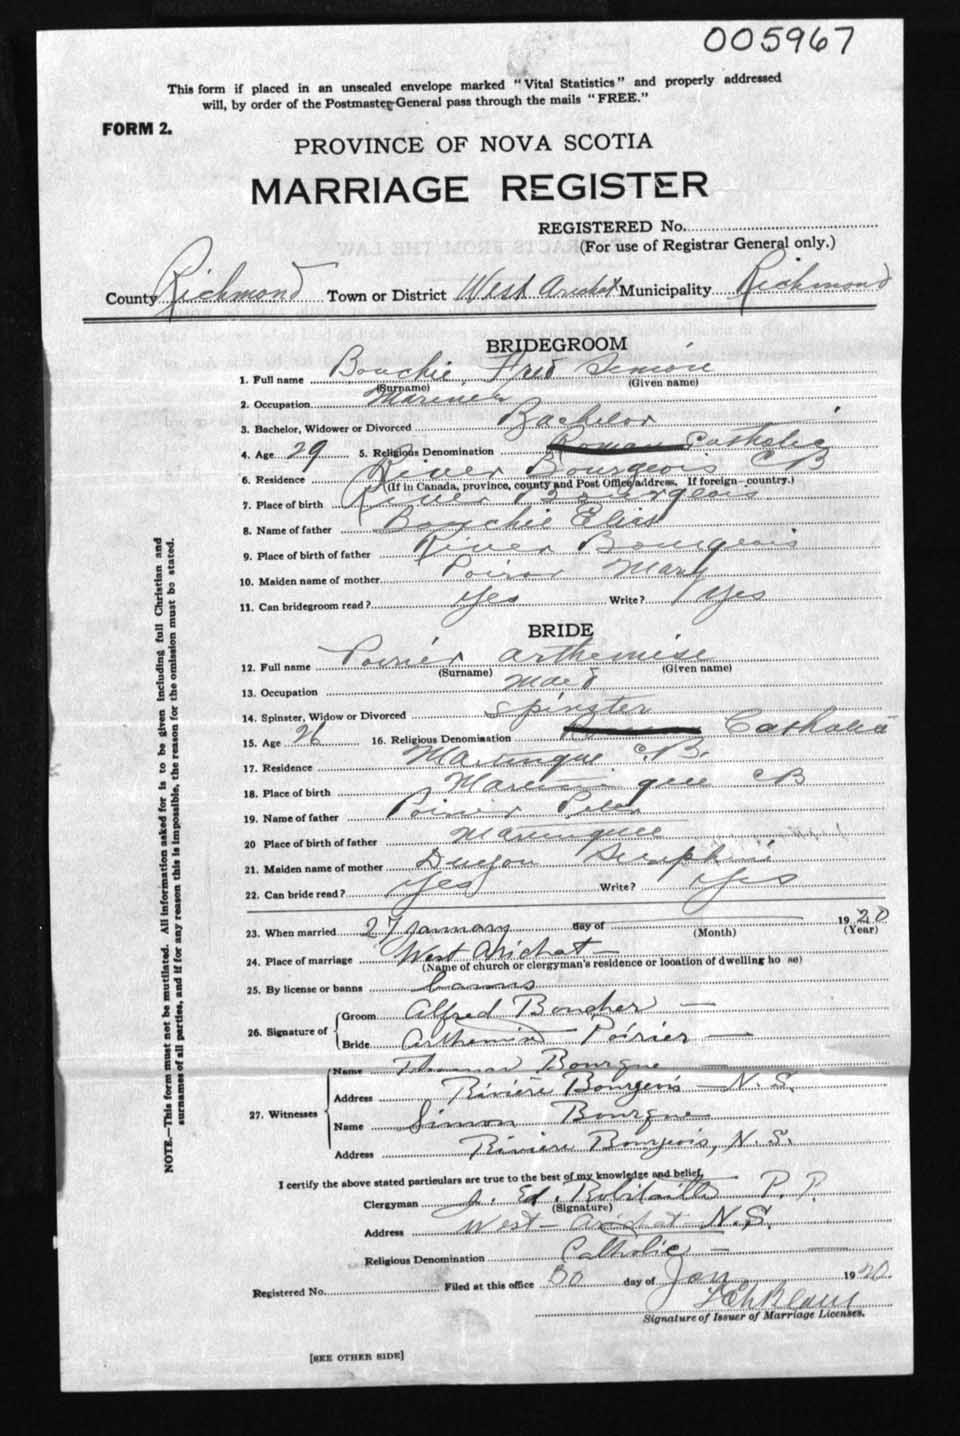 005967
This form if placed in an unsealed envelope marked "Vital Statistics" and properly addressed
will, by order of the Postmaster-General pass through the mails "FREE."
FORM 2.
PROVINCE OF NOVA SCOTIA
MARRIAGE REGISTER
REGISTERED No.
(For use of Registrar General only.)
County Richmond Town or District West Arichat Municipality Richmond
BRIDEGROOM
1. Full name Bouchie, Fred Simon
(Surname) (Given name)
2. Occupation Mariner
3. Bachelor, Widower or Divorced Bachelor
4. Age 29 5. Religious Denomination Roman Catholic
6. Residence River Bourgeois CB
(If in Canada, province, county and Post Office address. If foreign—country.)
7. Place of birth River Bourgeois
8. Name of father Bouchie Elias
9. Place of birth of father River Bourgeois
10. Maiden name of mother Poirier Mary
11. Can bridegroom read? Yes Write? Yes
BRIDE
12. Full name Poirier Arthemise
(Surname) (Given name)
13. Occupation Maid
14. Spinster, Widow or Divorced Spinster
15. Age 26 16. Religious Denomination Catholic
17. Residence Martinique C.B.
18. Place of birth Martinique CB
19. Name of father Poirier Peter
20 Place of birth of father Martinique
21. Maiden name of mother Duyon
22. Can bride read? Yes Write? Yes
23. When married 27 January day of 1920
(Month) (Year)
24. Place of marriage West Arichat
(Name of church or clergyman's residence or location of dwelling ho se)
25. By license or banns banns
26. Signature of Groom Alfred Boucher
Bride Arthemise Poirier
27. Witnesses
Name Thomas Bourque
Address Rivière Bourgeois N. S.
Name Simon Bourque
Address Riviere Bourgeois, N. S.
I certify the above stated particulars are true to the best of my knowledge and belief,
Clergyman J. Ed. Robitaille P. P.
(Signature)
Address West-Arichat N.S.
Religious Denomination Catholic
Registered No. Filed at this office 30 day of Jan 1920
Signature of Issuer of Marriage Licenses.
[SEE OTHER SIDE]
NOTE.—This form must not be mutilated. All information asked for is to be given including full Christian and
surnames of all parties, and if for any reason this is impossible, the reason for the omission must be stated.